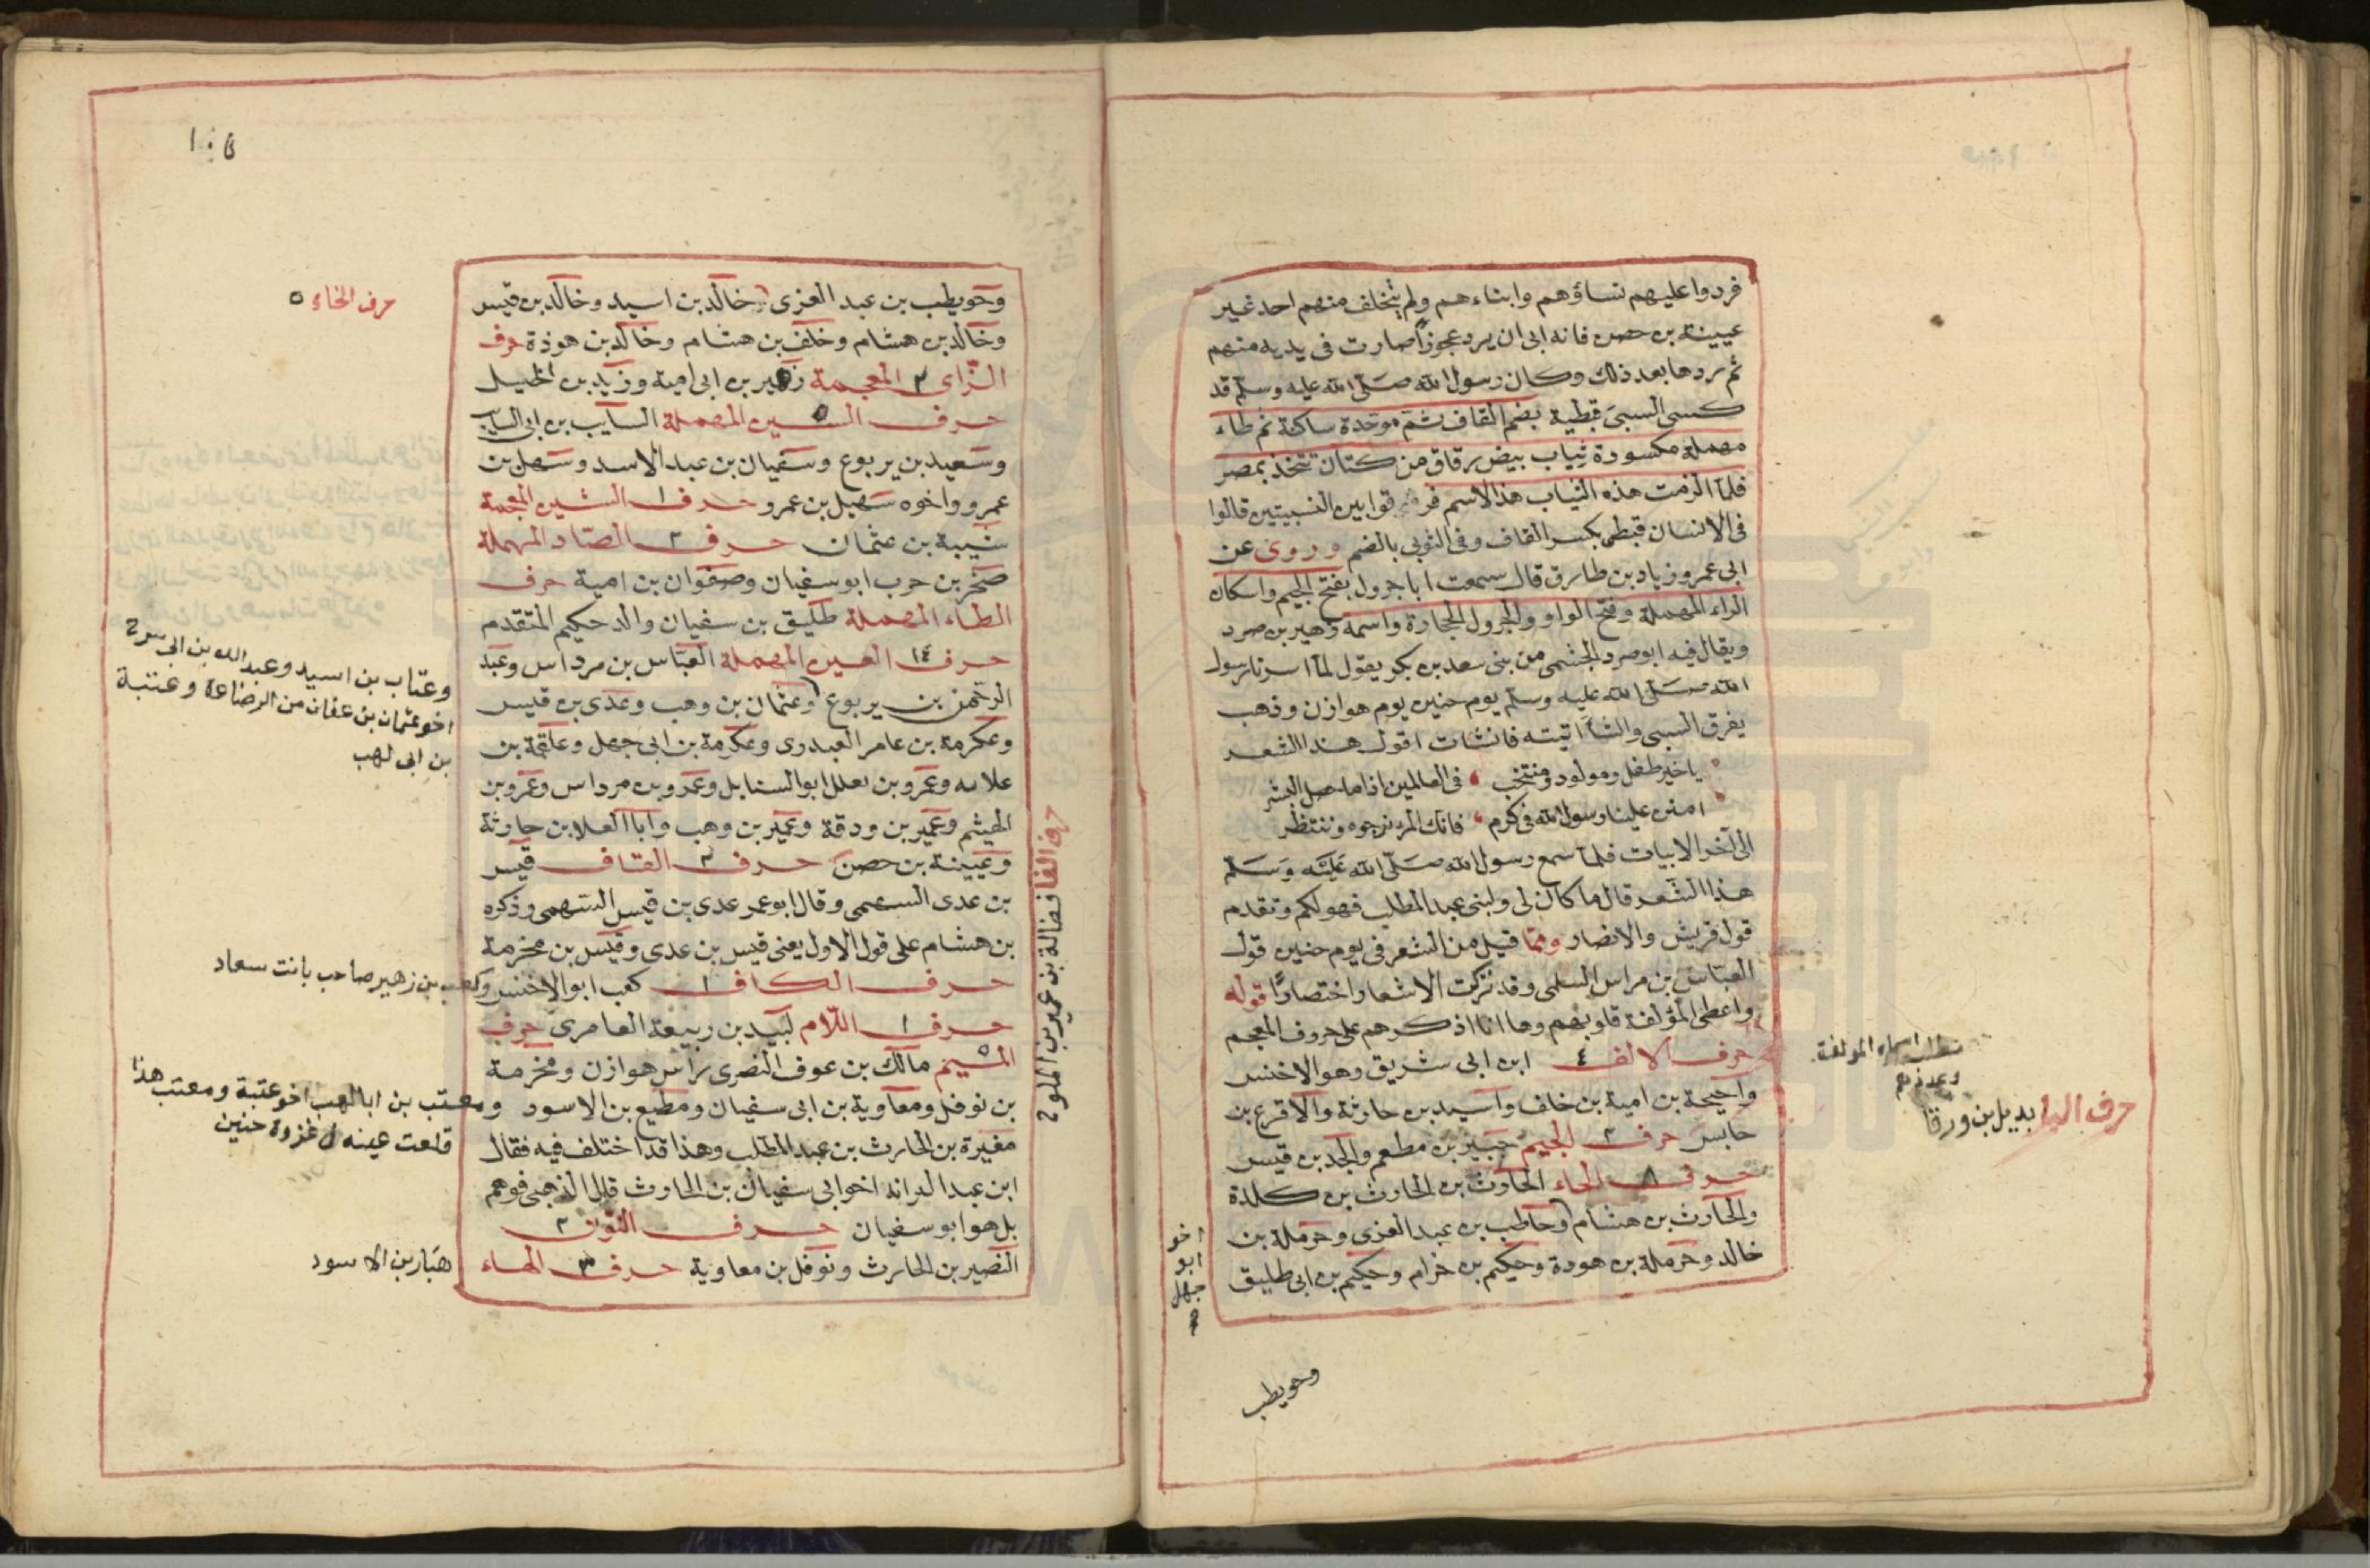 فردوا عليهم نساؤهم وابناءهم ولم يتخلف منهم احد غير
عيينة بن حصن فانه ابى ان يرد عجوزا صارت فى يديه منهم
ثم ردها بعد ذلك وكان رسول الله صلى الله عليه وسلم قد
كسى السبى قبطية بضم القاف ثم موحدة ساكنة ثم طاء
مهملة مكسورة ثياب بيض رقاق من كتان تتخذ بمصر
فلما الزمت هذه الثياب هذا الاسم فرقوا بين النسبتين قالوا
فى الانسان قبطى بكسر القاف وفى الثوبى بالضم وروى عن
ابى عمرو زياد بن طارق قال سمعت ابا جرول بفتح الجيم واسكان
الراء المهملة وفتح الواو والجرول الحجارة واسمه زهير بن صرد
ويقال فيه ابو صرد الجشمى من بنى سعد بن بكر يقول لما اسرنا رسول
الله صلى الله عليه وسلم يوم حنين يوم هوازن وذهب
يفرق السبى والشاء اتيته فانشات اقول هذا الشعر
ياخير طفل ومولود ومنتخب فى العالمين اذا ما حصل البشر
امنن علينا رسول الله فى كرم فانك المرء نرجوه وننتظر
الى آخر الابيات فلما سمع رسول الله صلى الله عليه وسلم
هذا الشعر قال ما كان لى ولبنى عبد المطلب فهو لكم وتقدم
قول قريش والانصار ومما قيل من الشعر فى يوم حنين قول
العباس بن مراس السلمى وقد تركت الاشعار اختصارًا قوله
واعطى المؤلفة قلوبهم وها انا اذكرهم على حروف المعجم
حرف الالف ٤ ابن ابى شريق وهو الاخنس
واحيحة بن امية بن خلف واسيد بن حارثة والاقرع بن
حابس حرف ٢ الجيم جبير بن مطعم والجد بن قيس
حرف ٨ الحاء الحارث بن الحارث بن كلدة
والحارث بن هشام وحاطب بن عبد العزى وحرملة بن
خالد وحرملة بن هودة وحكيم بن خزام وحكيم بن ابى طليق
اخو
ابو
جهل
وحويطب
اسماء المولفة
وعدتهم
حرف البا بديل بن ورقا
وحويطب بن عبد العزى خالد بن اسيد وخالد بن قيس
وخالد بن هشام وخلف بن هشام وخالد بن هوذة حرف
الزاى ٢ المعجمة زهير بن ابى امية وزيد بن الخيل
حرف ٥ السين المهملة السايب بن ابى السايب
وسعيد بن يربوع وسفيان بن عبد الاسد وسهل بن
عمرو واخوه سهيل بن عمرو حرف ١ الشين المعجمة
شيبة بن عثمان حرف ٢ الصاد المهملة
صخر بن حرب ابو سفيان وصفوان بن امية حرف
الطاء المهملة طليق بن سفيان والد حكيم المتقدم
حرف ١٤ العين المهملة العباس بن مرداس وعبد
الرحمن بن يربوع وعثمان بن وهب وعدى بن قيس
وعكرمة بن عامر العبدرى وعكرمة بن ابى جهل وعلقمة بن
علاثه وعمرو بن بعلل ابو السنابل وعمرو بن مرداس وعمرو بن
الهيثم وعمير بن ودقة وعمير بن وهب وابا العلا بن حارثة
وعيينة بن حصن حرف ٣ القاف قيس
بن عدى السهمى وقال ابو عمر عدى بن قيس السهمى وذكره
بن هشام على قول الاول يعنى قيس بن عدى وقيس بن مخرمة
حرف الكاف ١ كعب ابو الاخنس وكعب بن زهير صاحب بانت سعاد
حرف ١ اللام لبيد بن ربيعة العامرى حرف
الميم ٥ مالك بن عوف النصرى راس هوازن ومخرمة
بن نوفل ومعاوية بن ابى سفيان ومطيع بن الاسود
مغيرة بن الحارث بن عبد المطلب وهذا قد اختلف فيه فقال
ابن عبد البر انه اخو ابى سفيان بن الحارث قال الذهبى فوهم
بل هو ابو سفيان حرف النون ٢
النضير بن الحارث ونوفل بن معاوية حرف ٣ الهاء
حرف الفا فضالة بن عمير بن الملوح
حرف الخاء ٥
وعتاب بن اسيد وعبد الله بن ابى سرح
اخو عثمان بن عفان من الرضاعة وعتبة
بن ابى لهب
ومعتب بن ابا لهب اخو عتبة ومعتب هذا
قلعت عينه فى غزوة حنين
هبار بن الاسود